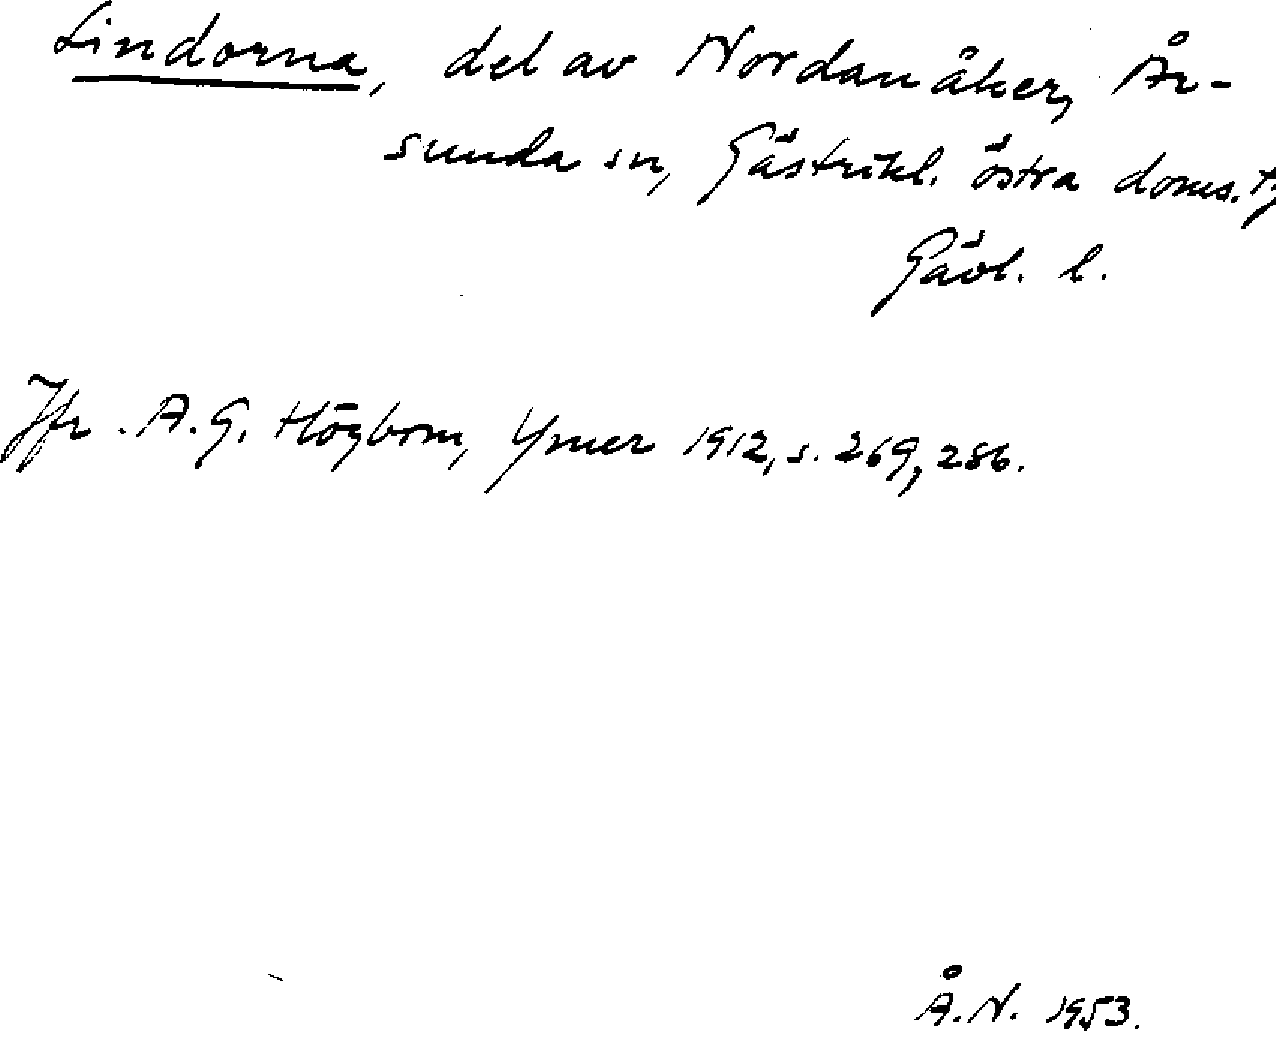 Lindorna, del av Nordanåker, År-
sunda sn, Gästrikl. östra doms.
Gävl. l.
Jfr. A. G. Högbom, Ymer 1912, s. 269, 286.
Å. N. 1953.